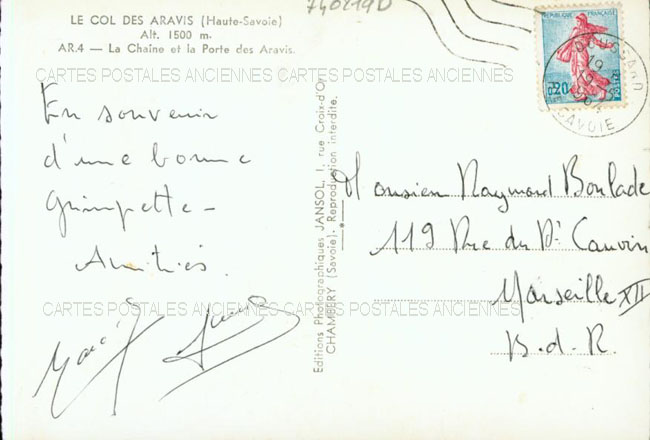 LE COL DES ARAVIS (Haute-Savoie)
Alt. 1500 m.
AR.4 — La Chaîne et la Porte des Aravis.
740219D
CARTES POSTALES ANCIENNES CARTES POSTALES ANCIENNES
En souvenir
d'une bonne
Grimpette -
Amitiés.
CARTES POSTALES ANCIENNES CARTES POSTALES ANCIENNES
Editions Photographiques JANSOL, 1, rue Croix-d'Or
CHAMBERY (Savoie). Reproduction interdite.
REPUBLIQUE FRANÇAISE
0,20
POSTES
19
SAVOIE
Monsieur Raymond Boulade
119 Rue du Dr Cauvin
Marseille XII
B.d.R.